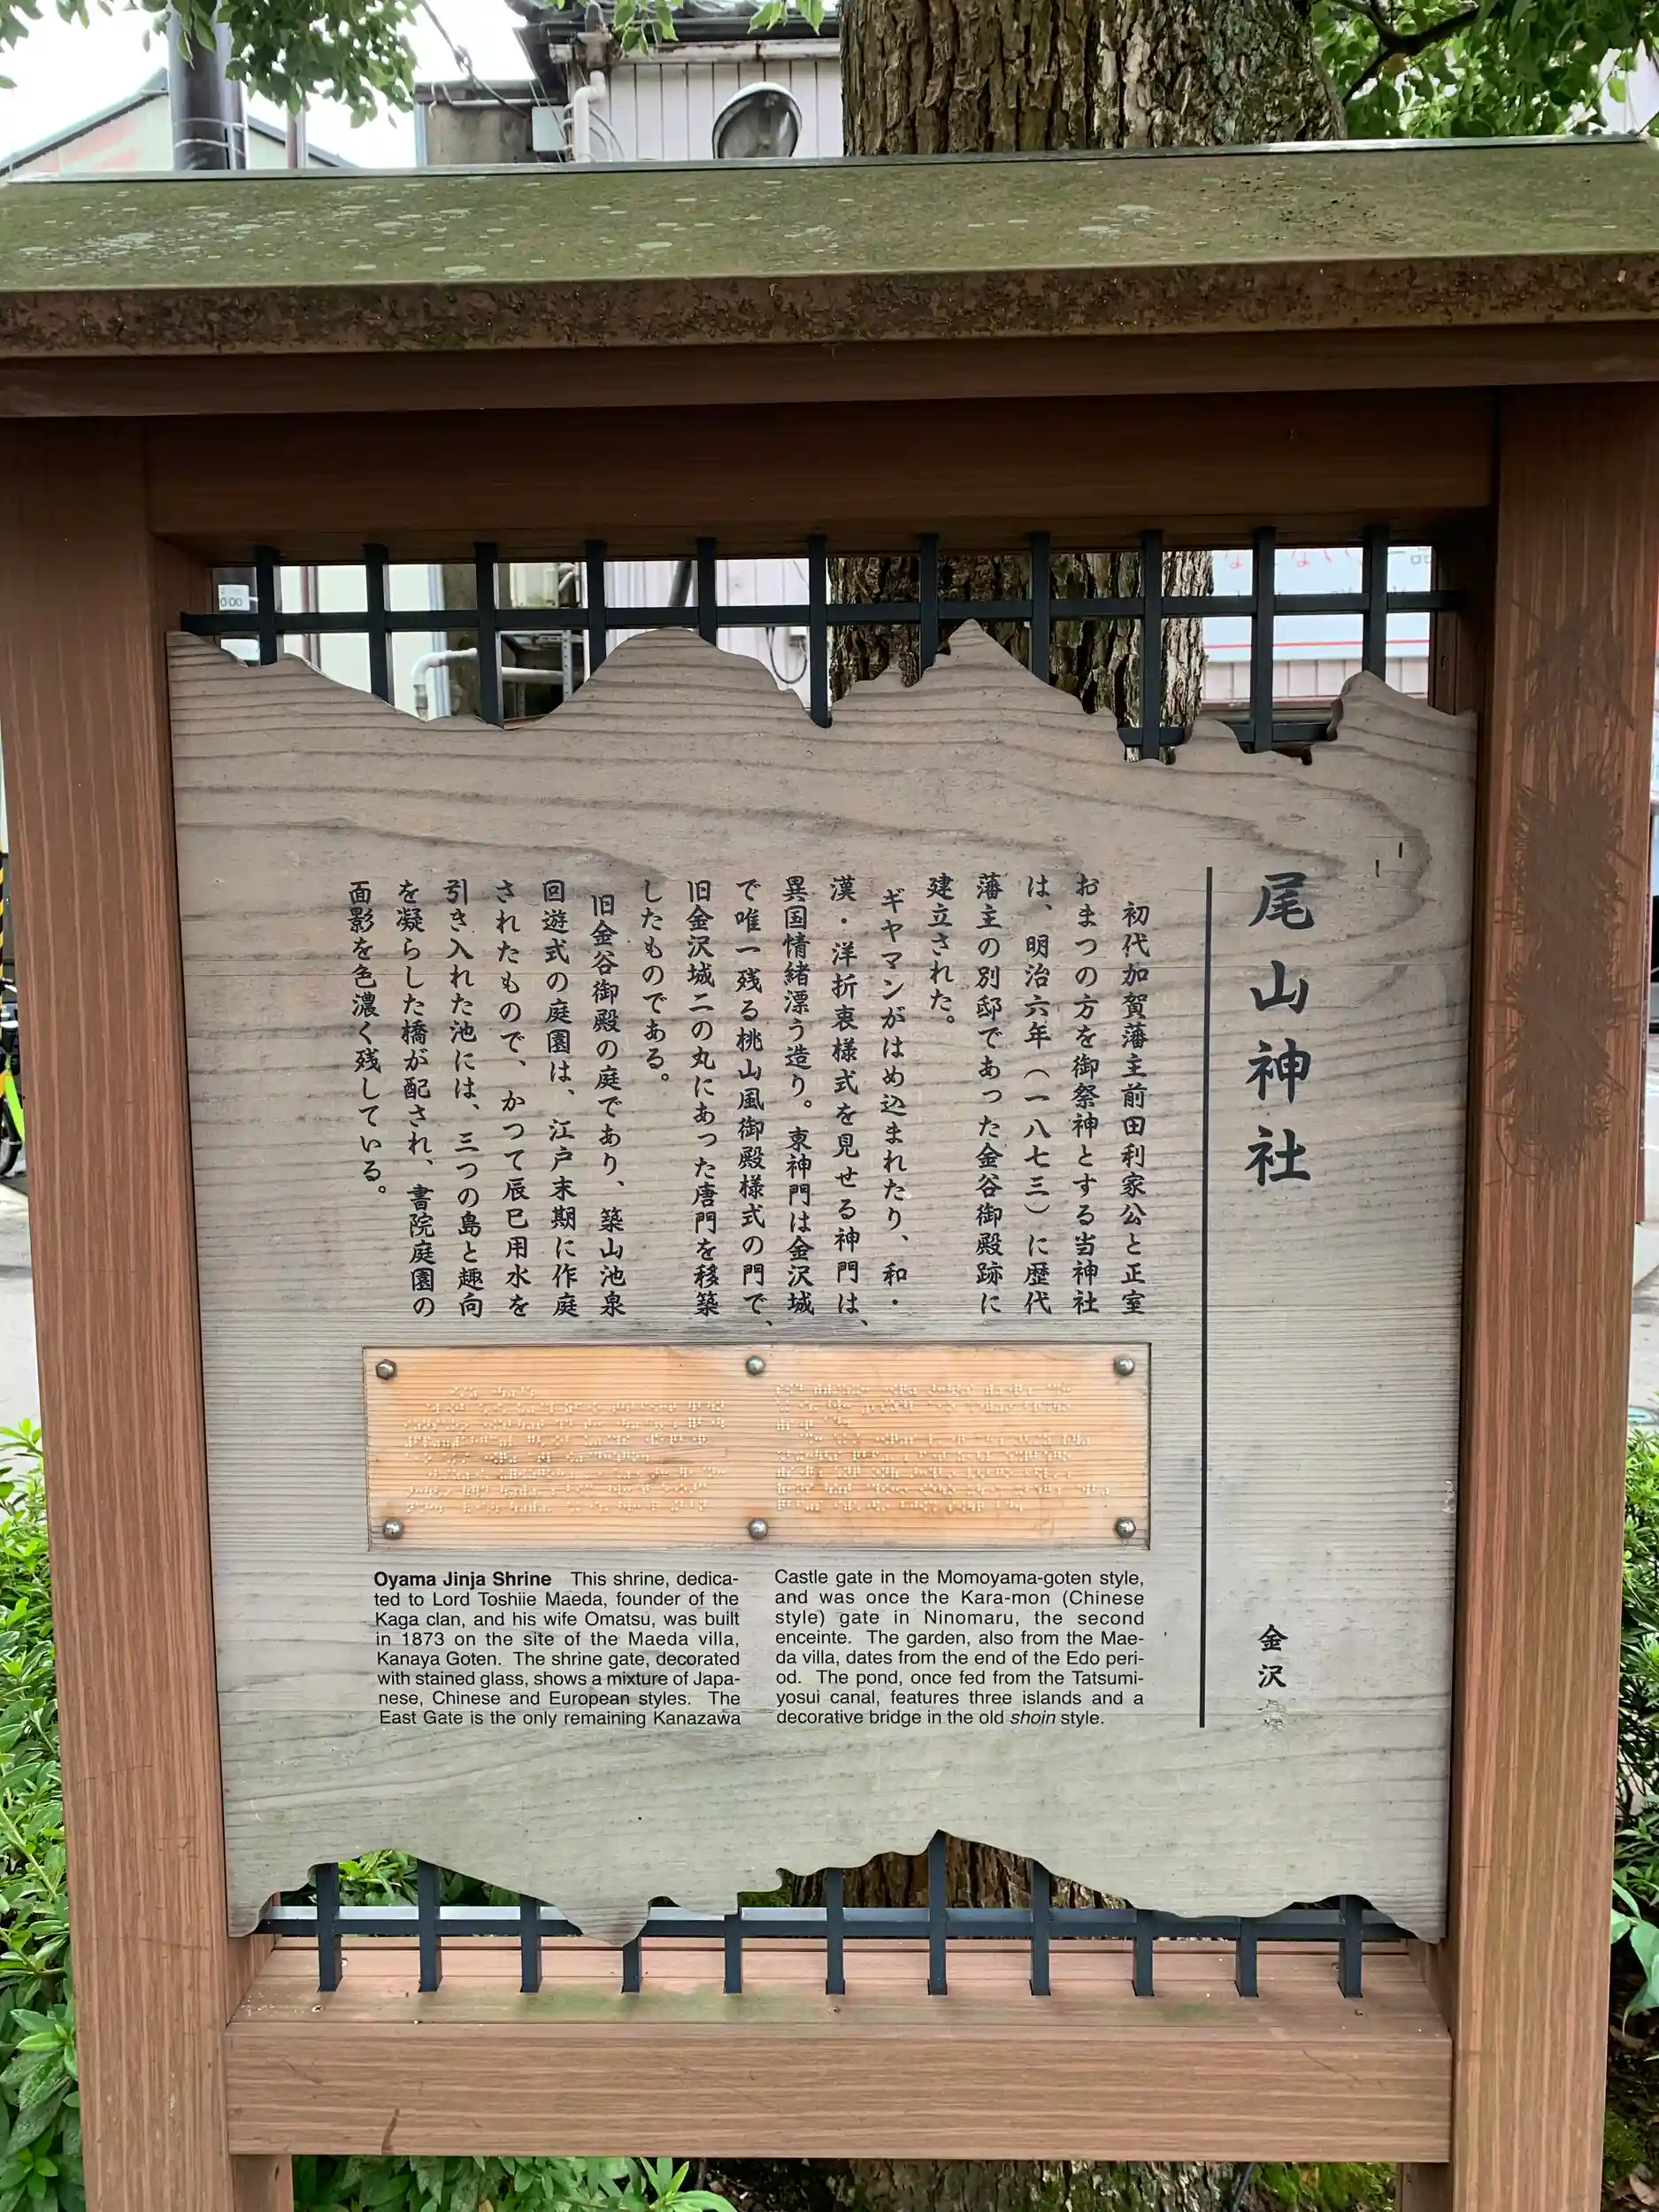 尾山神社
初代加賀藩主前田利家公と正室
おまつの方を御祭神とする当神社
は、明治六年(一八七三)に歴代
藩主の別邸であった金谷御殿跡に
建立された。
ギヤマンがはめ込まれたり、和・
漢・洋折衷様式を見せる神門は、
異国情緒漂う造り。東神門は金沢城
で唯一残る桃山風御殿様式の門で、
旧金沢城二の丸にあった唐門を移築
したものである。
旧金谷御殿の庭であり、築山池泉
回遊式の庭園は、江戸末期に作庭
されたもので、かつて辰巳用水を
引き入れた池には、三つの島と趣向
を凝らした橋が配され、書院庭園の
面影を色濃く残している。
金沢
Oyama Jinja Shrine This shrine, dedica-
ted to Lord Toshiie Maeda, founder of the
Kaga clan, and his wife Omatsu, was built
in 1873 on the site of the Maeda villa,
Kanaya Goten. The shrine gate, decorated
with stained glass, shows a mixture of Japa-
nese, Chinese and European styles. The
East Gate is the only remaining Kanazawa
Castle gate in the Momoyama-goten style,
and was once the Kara-mon (Chinese
style) gate in Ninomaru, the second
enceinte. The garden, also from the Mae-
da villa, dates from the end of the Edo peri-
od. The pond, once fed from the Tatsumi-
yosui canal, features three islands and a
decorative bridge in the old shoin style.